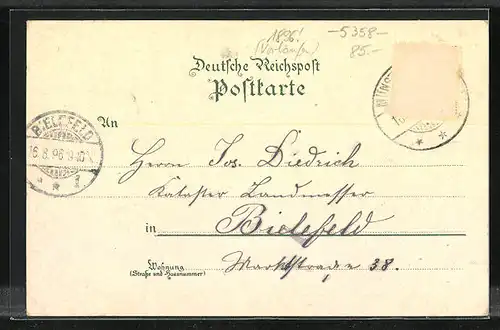 1896!
(Vorläufer)
-5358-
85.-
Deutsche Reichspost
Postkarte
MÜNST
BIELEFELD
16.8.96.9-10
An
Herrn Jos. Diedrich
Kataster Landmesser
in Bielefeld
Wohnung
(Straße und Hausnummer)
Marktstrade 38.